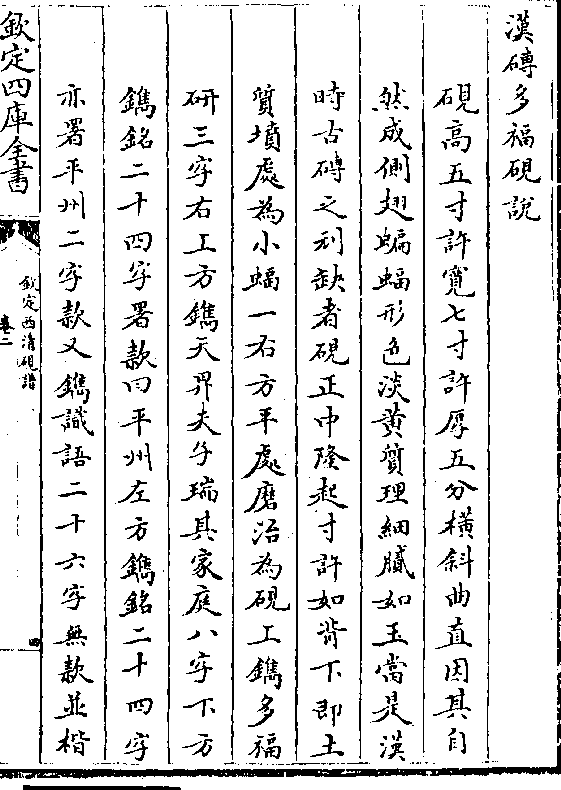 漢磚多福硯說
硯高五寸許寬七寸許厚五分橫斜曲直因其自
然成側翅蝙蝠形色淡黃質理細膩如玉當是漢
時古磚之刓缺者硯正中隆起寸許如背下即土
質墳處為小蝠一右方平處磨治為硯上鐫多福
研三字右上方鐫天畀夫子瑞其家庭八字下方
鐫銘二十四字署款曰平州左方鐫銘二十四字
亦署平州二字款又鐫識語二十六字無款並楷
欽定四庫全書
欽定西清硯譜
卷二
四